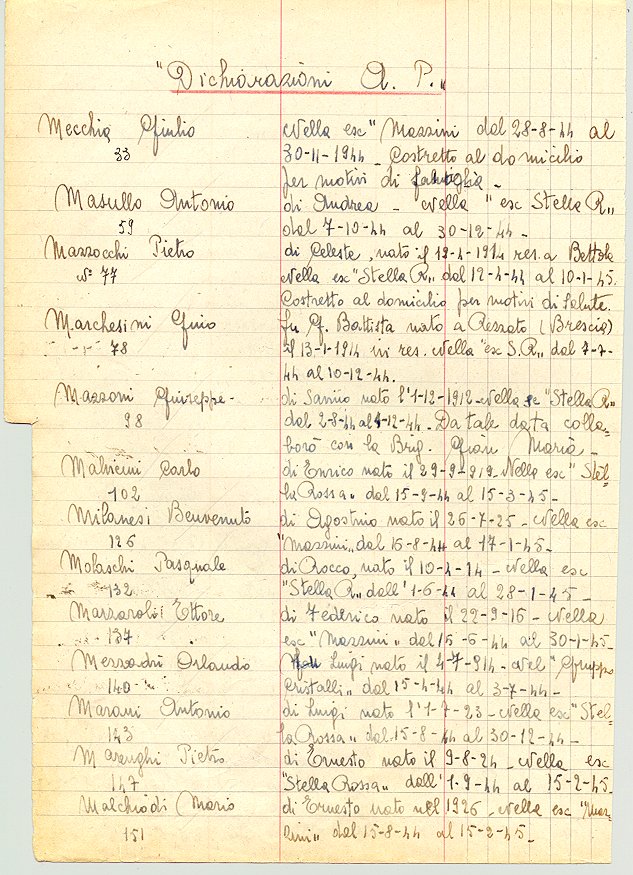 "Dichiarazioni A. P.„
Mecchia Giulio Nella esc "Mazzini dal 28-8-44 al
33 30-11-1944 - Costretto al domicilio
per motivi di famiglia -
Masullo Antonio di Andrea - Nella "esc Stella R„
59 dal 7-10-44 al 30-12-44 -
Mazzocchi Pietro di Celeste, nato il 19-4-1914 res. a Bettola
N° 77 Nella esc "Stella R„ dal 12-4-44 al 10-1-45.
Costretto al domicilio per motivi di salute.
Marchesini Gino fu G. Battista nato a Rezzato (Brescia)
78 il 13-1-1914 ivi res. Nella "esc S.R„ dal 7-7-
44 al 10-12-44.
Mazzoni Giuseppe - di nato l'1-12-1912 - Nella esc "Stella R„
98 dal 2-8-44 al -12-44. Da tale data colla-
borò con la Brig. Gian Maria -
Malvicini Carlo di Enrico nato il 29-9-919 - Nella esc "Stel-
102 la Rossa„ dal 15-9-44 al 15-3-45 -
Milanesi Benvenuto di Agostino nato il 26-7-25 - Nella esc
126 "Mazzini„ dal 16-8-44 al 17-1-45 -
Molaschi Pasquale di Rocco, nato il 10-4-14 - Nella esc
132 "Stella R„ dall'1-6-44 al 28-1-45 -
Marzaroli Ettore di Federico nato il 22-9-16 - Nella
134 esc "Mazzini„ dal 15-6-44 al 30-1-45 -
Mezzadri Orlando Luigi nato il 4-7-914 - Nel "Gruppo
140 Cristalli„ dal 15-4-44 al 3-7-44 -
Marani Antonio di Luigi nato l'1-7-23 - Nella esc "Stel-
143 la Rossa„ dal 15-8-44 al 30-12-44 -
Marenghi Pietro di Ernesto nato il 9-8-24 - Nella esc
147 "Stella Rossa„ dall'1-9-44 al 15-2-45
Malchiodi Mario di Ernesto nato nel 1926 - Nella esc "Maz-
151 zini„ dal 15-8-44 al 15-2-45 -